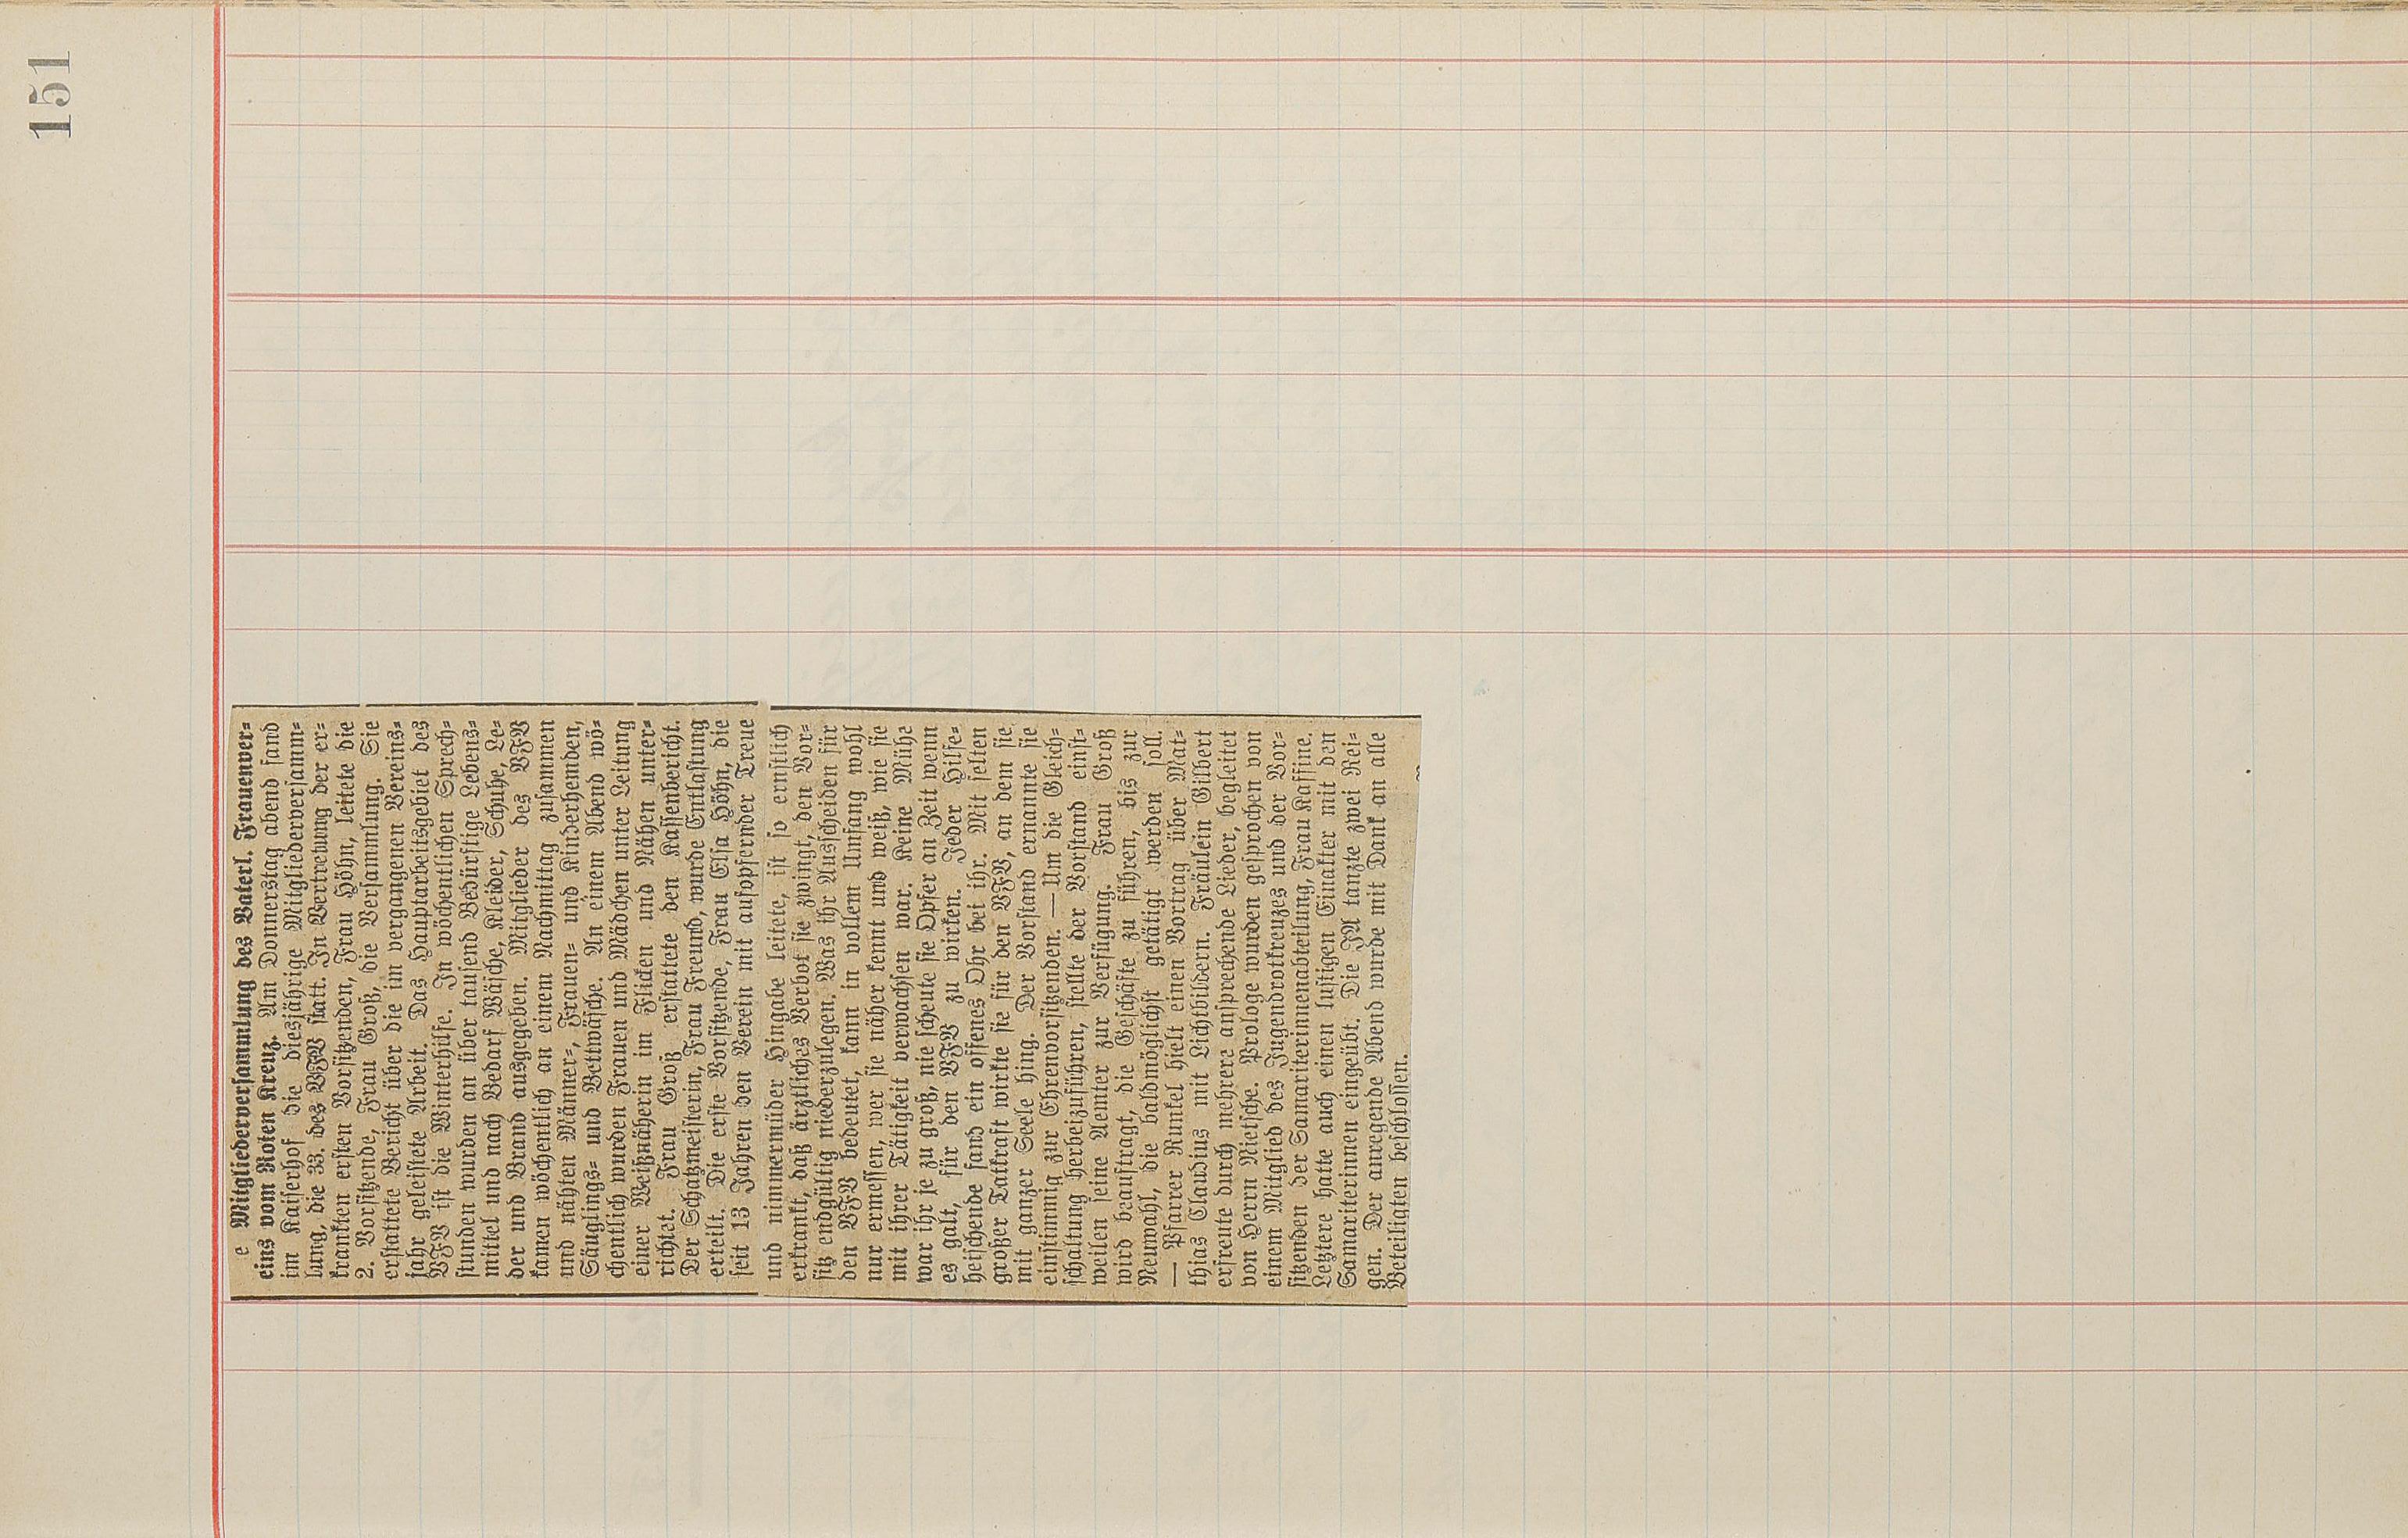 151
e Mitgliederversammlung des Vaterl. Frauenver-
eins vom Roten Kreuz. Am Donnerstag abend fand
im Kaiserhof die diesjährige Mitgliederversamm-
lung, die 33. des VFV statt. In Vertretung der er-
krankten ersten Vorsitzenden, Frau Höhn, leitete die
2. Vorsitzende, Frau Groß, die Versammlung. Sie
erstattete Bericht über die im vergangenen Vereins-
jahr geleistete Arbeit. Das Hauptarbeitsgebiet des
VFV ist die Winterhilfe. In wöchentlichen Sprech-
stunden wurden an über tausend Bedürftige Lebens-
mittel und nach Bedarf Wäsche, Kleider, Schuhe, Le-
der und Brand ausgegeben. Mitglieder des VFV
kamen wöchentlich an einem Nachmittag zusammen
und nähten Männer-, Frauen- und Kinderhemden,
Säuglings- und Bettwäsche. An einem Abend wö-
chentlich wurden Frauen und Mädchen unter Leitung
einer Weißnäherin im Flicken und Nähen unter-
richtet. Frau Groß erstattete den Kassenbericht.
Der Schatzmeisterin, Frau Freund, wurde Entlastung
erteilt. Die erste Vorsitzende, Frau Elsa Höhn, die
seit 13 Jahren den Verein mit aufopfernder Treue
und nimmermüder Hingabe leitete, ist so ernstlich
erkrankt, daß ärztliches Verbot sie zwingt, den Vor-
sitz endgültig niederzulegen. Was ihr Ausscheiden für
den VFV bedeutet, kann in vollem Umfang wohl
nur ermessen, wer sie näher kennt und weiß, wie sie
mit ihrer Tätigkeit verwachsen war. Keine Mühe
war ihr je zu groß, nie scheute sie Opfer an Zeit wenn
es galt, für den VFV zu wirken. Jeder Hilfe-
heischende fand ein offenes Ohr bei ihr. Mit selten
großer Tatkraft wirkte sie für den VFV, an dem sie
mit ganzer Seele hing. Der Vorstand ernannte sie
einstimmig zur Ehrenvorsitzenden. — Um die Gleich-
schaltung herbeizuführen, stellte der Vorstand einst-
weilen seine Aemter zur Verfügung. Frau Groß
wird beauftragt, die Geschäfte zu führen, bis zur
Neuwahl, die baldmöglichst getätigt werden soll.
— Pfarrer Runkel hielt einen Vortrag über Mat-
thias Claudius mit Lichtbildern. Fräulein Gilbert
erfreute durch mehrere ansprechende Lieder, begleitet
von Herrn Nietsche. Prologe wurden gesprochen von
einem Mitglied des Jugendrotkreuzes und der Vor-
sitzenden der Samariterinnenabteilung, Frau Kaffine.
Letztere hatte auch einen lustigen Einakter mit den
Samariterinnen eingeübt. Die JA tanzte zwei Rei-
gen. Der anregende Abend wurde mit Dank an alle
Beteiligten beschlossen.